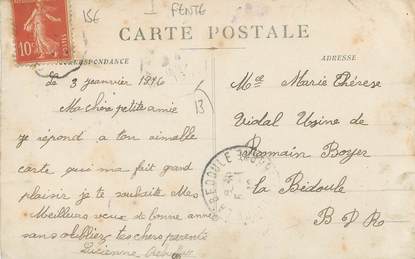 15€
FENTE
10
CARTE POSTALE
CORRESPONDANCE
ADRESSE
Le 3 jeanvier 1916
Ma chère petite amie
je répond a ton aimable
carte qui ma fait grand
plaisir je te souhaite Mes
Meilleurs veux de bonne année
sans oublier tes chers parents
Lucienne
13
Mlle Marie Thérèse
Vidal Usine de
Romain Boyer
la Bédoule
B D R
BEDOULE